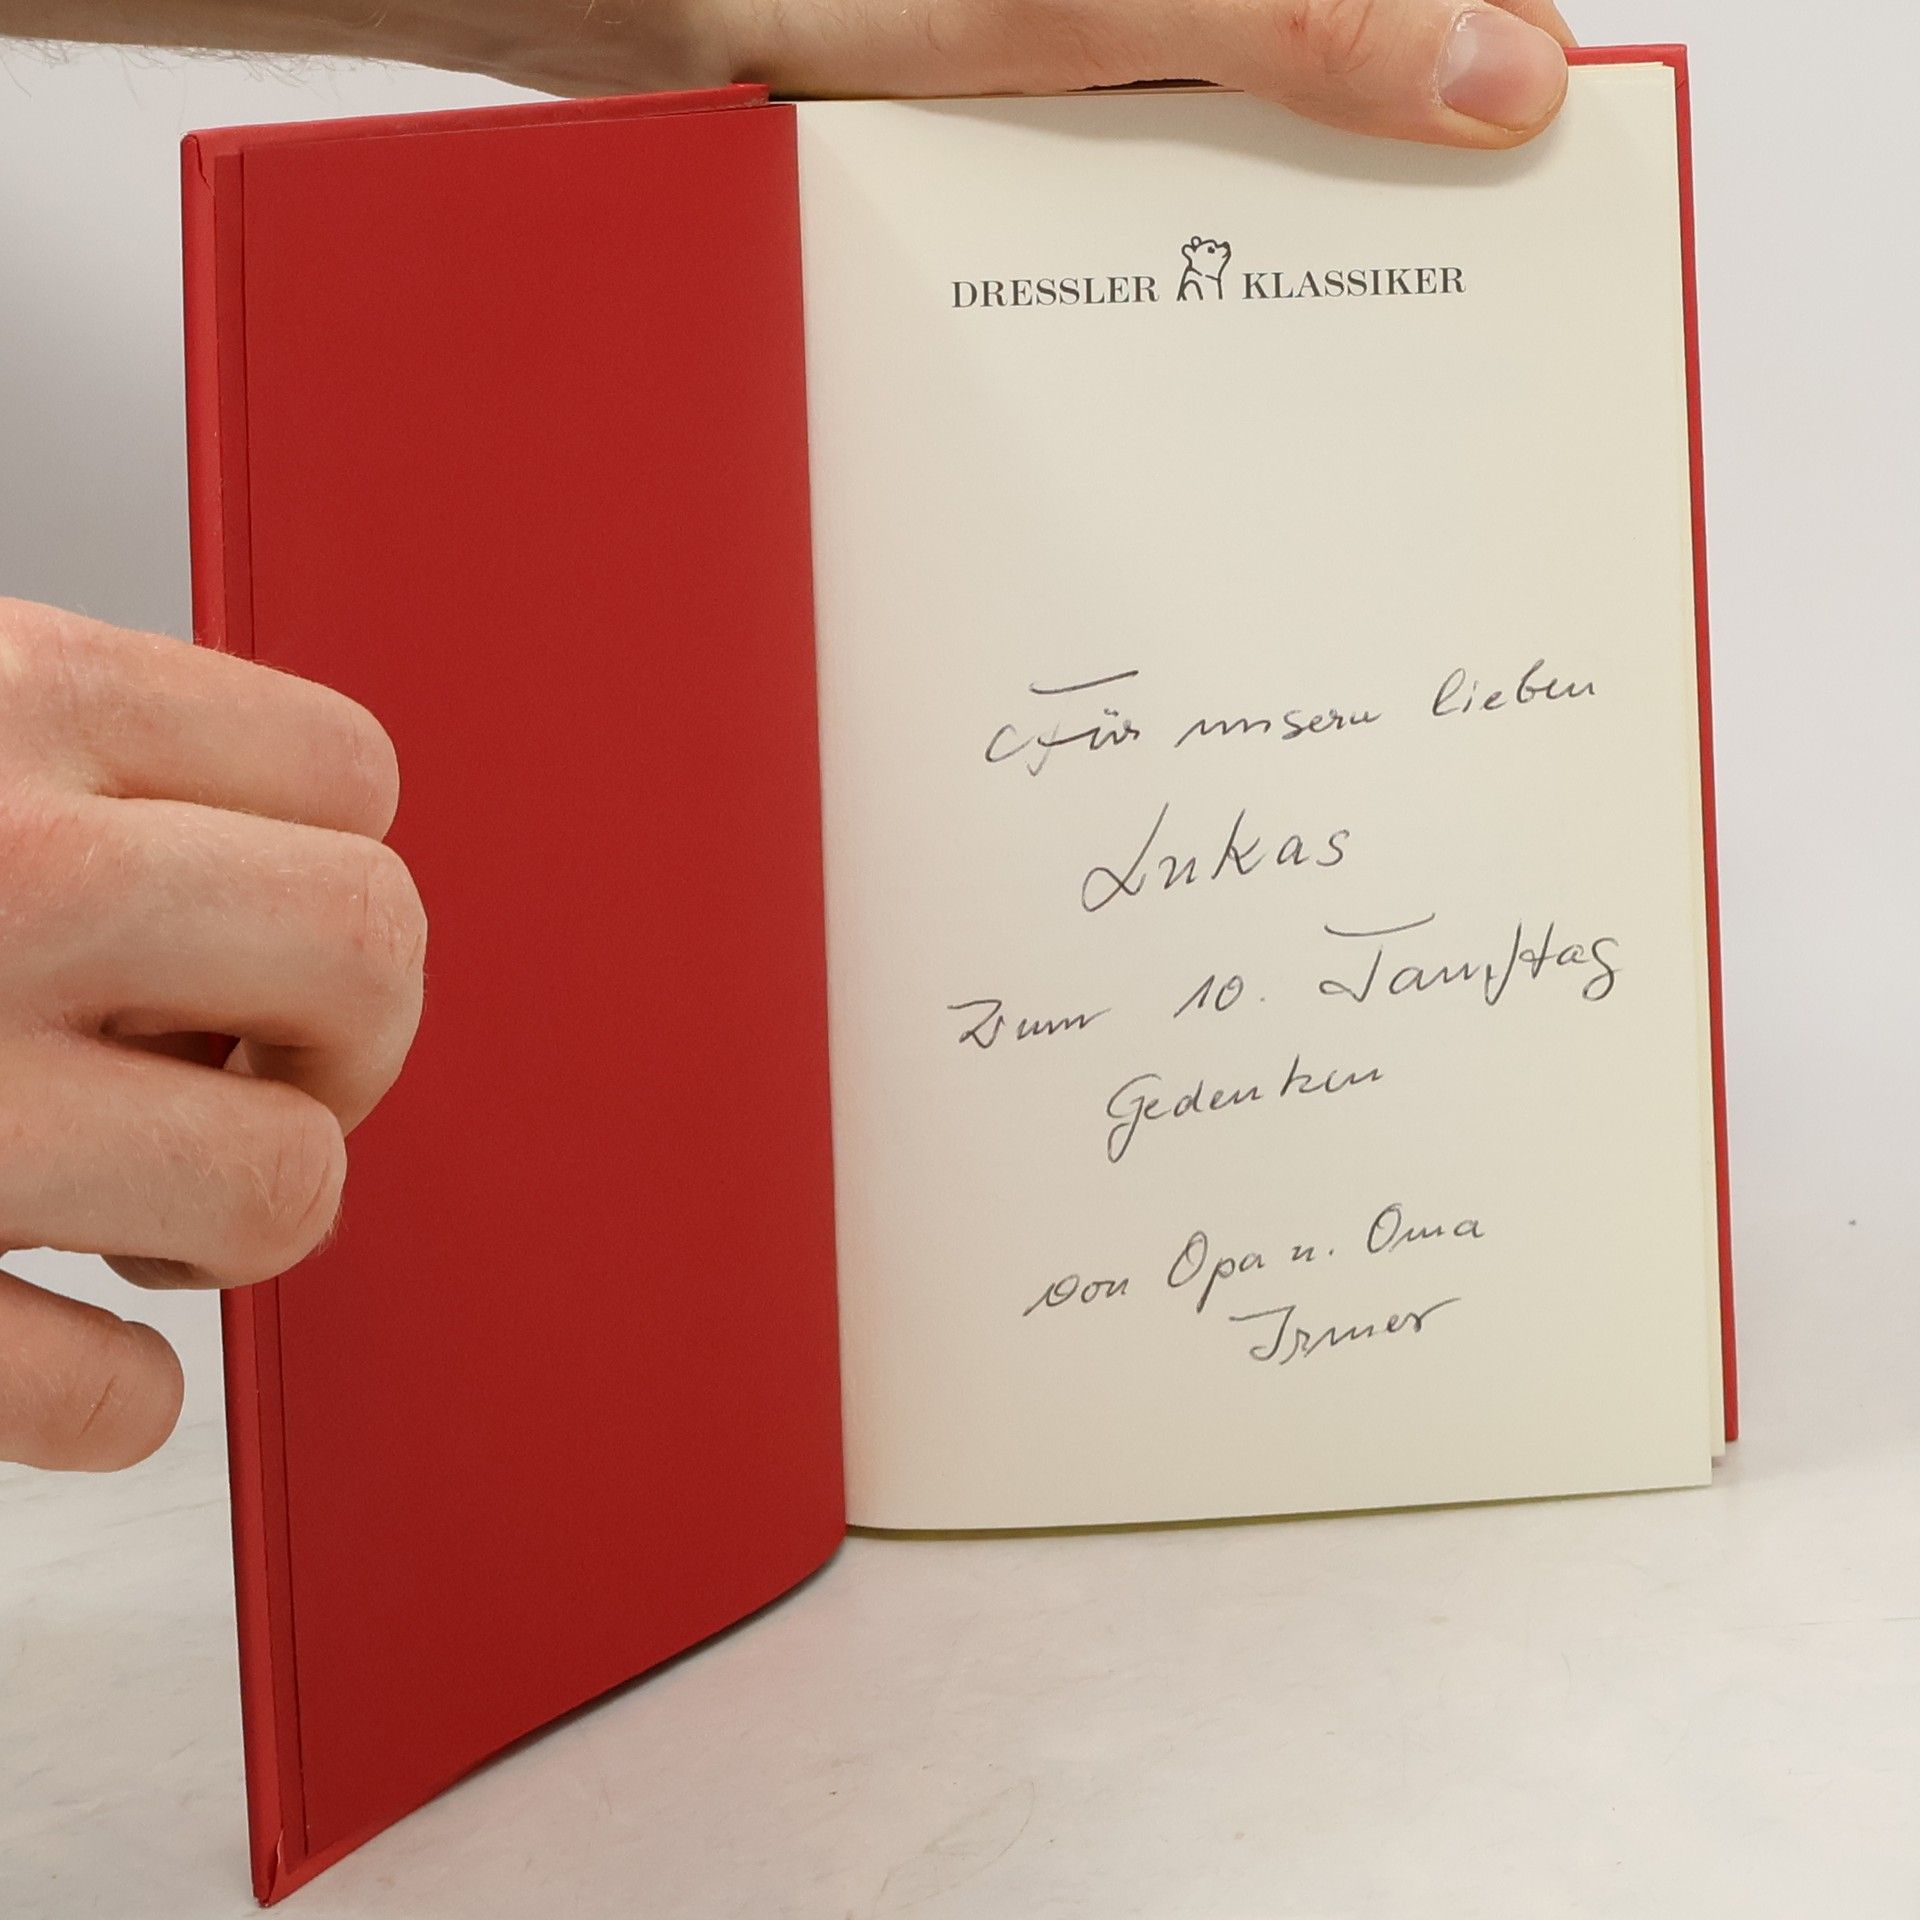 DRESSLER KLASSIKER
Für unsern lieben
Lukas
Zum 10. Tauftag
Gedenken
von Opa u. Oma
Irmer